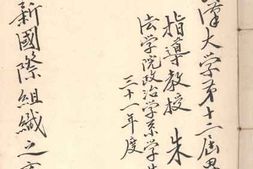 漢大学第十一届畢
指導教授 朱
法学院政治学系学生
三十一年度
新國際組織之